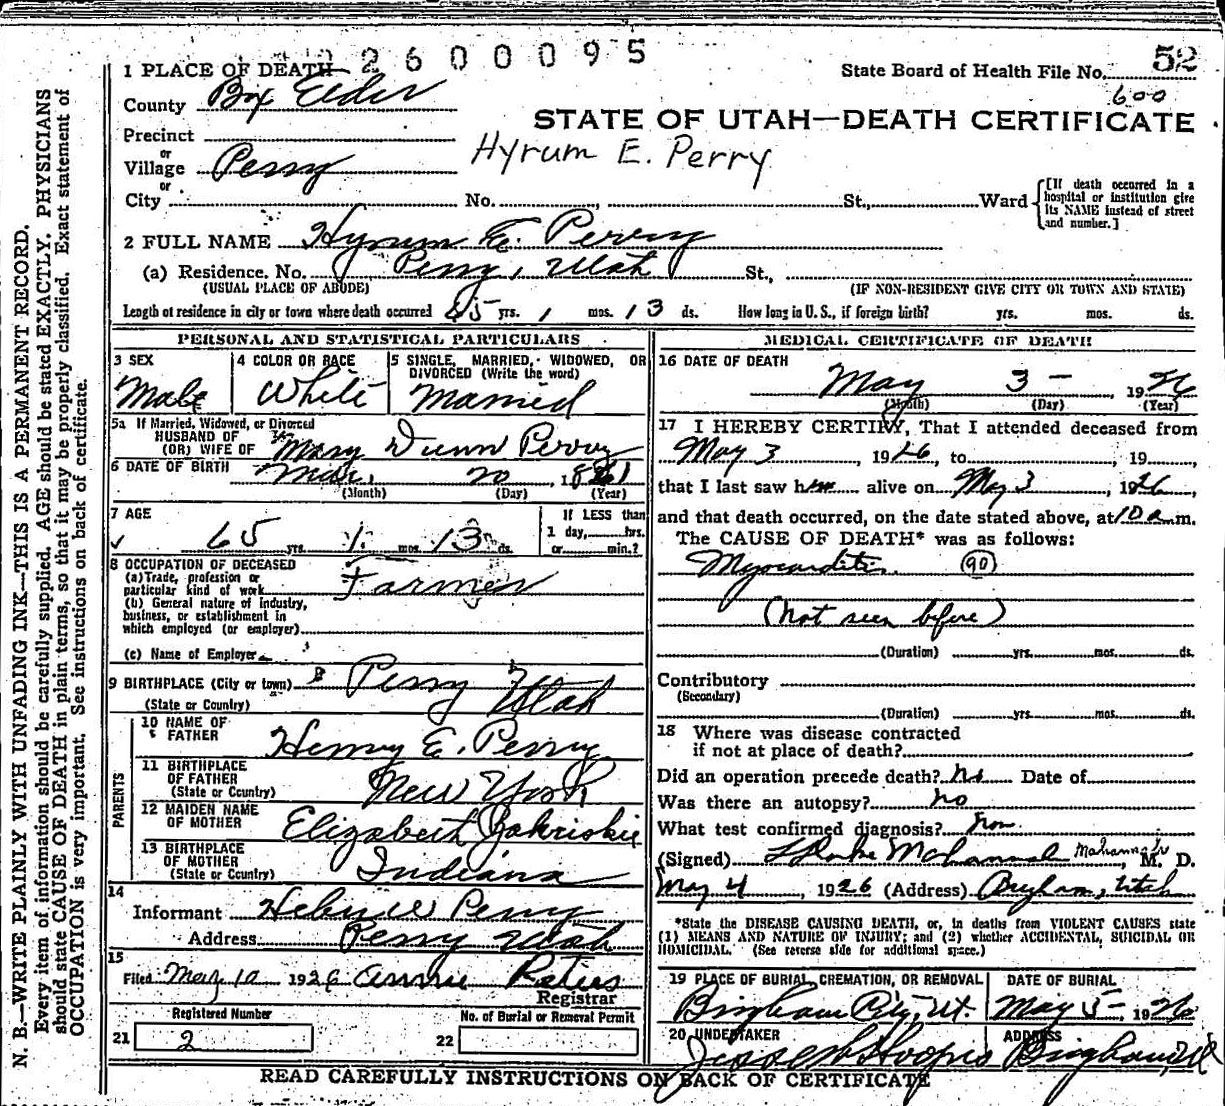 2600095
52
1 PLACE OF DEATH
State Board of Health File No.
600
County Box Elder
STATE OF UTAH—DEATH CERTIFICATE
Precinct
or
Village Perry
Hyrum E. Perry
or
City No. St., Ward
[If death occurred in a hospital or institution give its NAME instead of street and number.]
2 FULL NAME Hyrum E. Perry
(a) Residence. No. Perry, Utah St.,
(USUAL PLACE OF ABODE) (IF NON-RESIDENT GIVE CITY OR TOWN AND STATE)
Length of residence in city or town where death occurred 65 yrs. 1 mos. 13 ds. How long in U. S., if foreign birth? yrs. mos. ds.
PERSONAL AND STATISTICAL PARTICULARS
3 SEX
Male
4 COLOR OR RACE
White
5 SINGLE, MARRIED, WIDOWED, OR DIVORCED (Write the word)
Married
5a If Married, Widowed, or Divorced
HUSBAND OF
(OR) WIFE OF Mary Dunn Perry
6 DATE OF BIRTH Mar. 20, 1861
(Month) (Day) (Year)
7 AGE
65 yrs. 1 mos. 13 ds.
If LESS than
1 day, hrs.
or min.?
8 OCCUPATION OF DECEASED
(a) Trade, profession or
particular kind of work Farmer
(b) General nature of industry,
business, or establishment in
which employed (or employer)
(c) Name of Employer
9 BIRTHPLACE (City or town) Perry
(State or Country) Utah
PARENTS
10 NAME OF
FATHER Henry E. Perry
11 BIRTHPLACE
OF FATHER
(State or Country) New York
12 MAIDEN NAME
OF MOTHER Elizabeth Zabriskie
13 BIRTHPLACE
OF MOTHER
(State or Country) Indiana
14
Informant Perry
Address Perry Utah
15
Filed May 10 1926 Annie
Registrar
Registered Number
21 2
No. of Burial or Removal Permit
22
MEDICAL CERTIFICATE OF DEATH
16 DATE OF DEATH
May 3 — , 1926
(Month) (Day) (Year)
17 I HEREBY CERTIFY, That I attended deceased from
May 3, 1926, to , 19
that I last saw him alive on May 3, 1926,
and that death occurred, on the date stated above, at 10 a m.
The CAUSE OF DEATH* was as follows:
Myocarditis 90
(Not seen before)
(Duration) yrs. mos. ds.
Contributory
(Secondary)
(Duration) yrs. mos. ds.
18 Where was disease contracted
if not at place of death?
Did an operation precede death? no Date of
Was there an autopsy? no
What test confirmed diagnosis?
(Signed) , M. D.
May 4, 1926 (Address) Brigham, Utah
*State the DISEASE CAUSING DEATH, or, in deaths from VIOLENT CAUSES state
(1) MEANS AND NATURE OF INJURY; and (2) whether ACCIDENTAL, SUICIDAL OR
HOMICIDAL. (See reverse side for additional space.)
19 PLACE OF BURIAL, CREMATION, OR REMOVAL
Brigham City, Ut.
DATE OF BURIAL
May 5 — 1926
20 UNDERTAKER
ADDRESS
READ CAREFULLY INSTRUCTIONS ON BACK OF CERTIFICATE
N. B.—WRITE PLAINLY WITH UNFADING INK—THIS IS A PERMANENT RECORD.
Every item of information should be carefully supplied. AGE should be stated EXACTLY. PHYSICIANS
should state CAUSE OF DEATH in plain terms, so that it may be properly classified. Exact statement of
OCCUPATION is very important. See instructions on back of certificate.